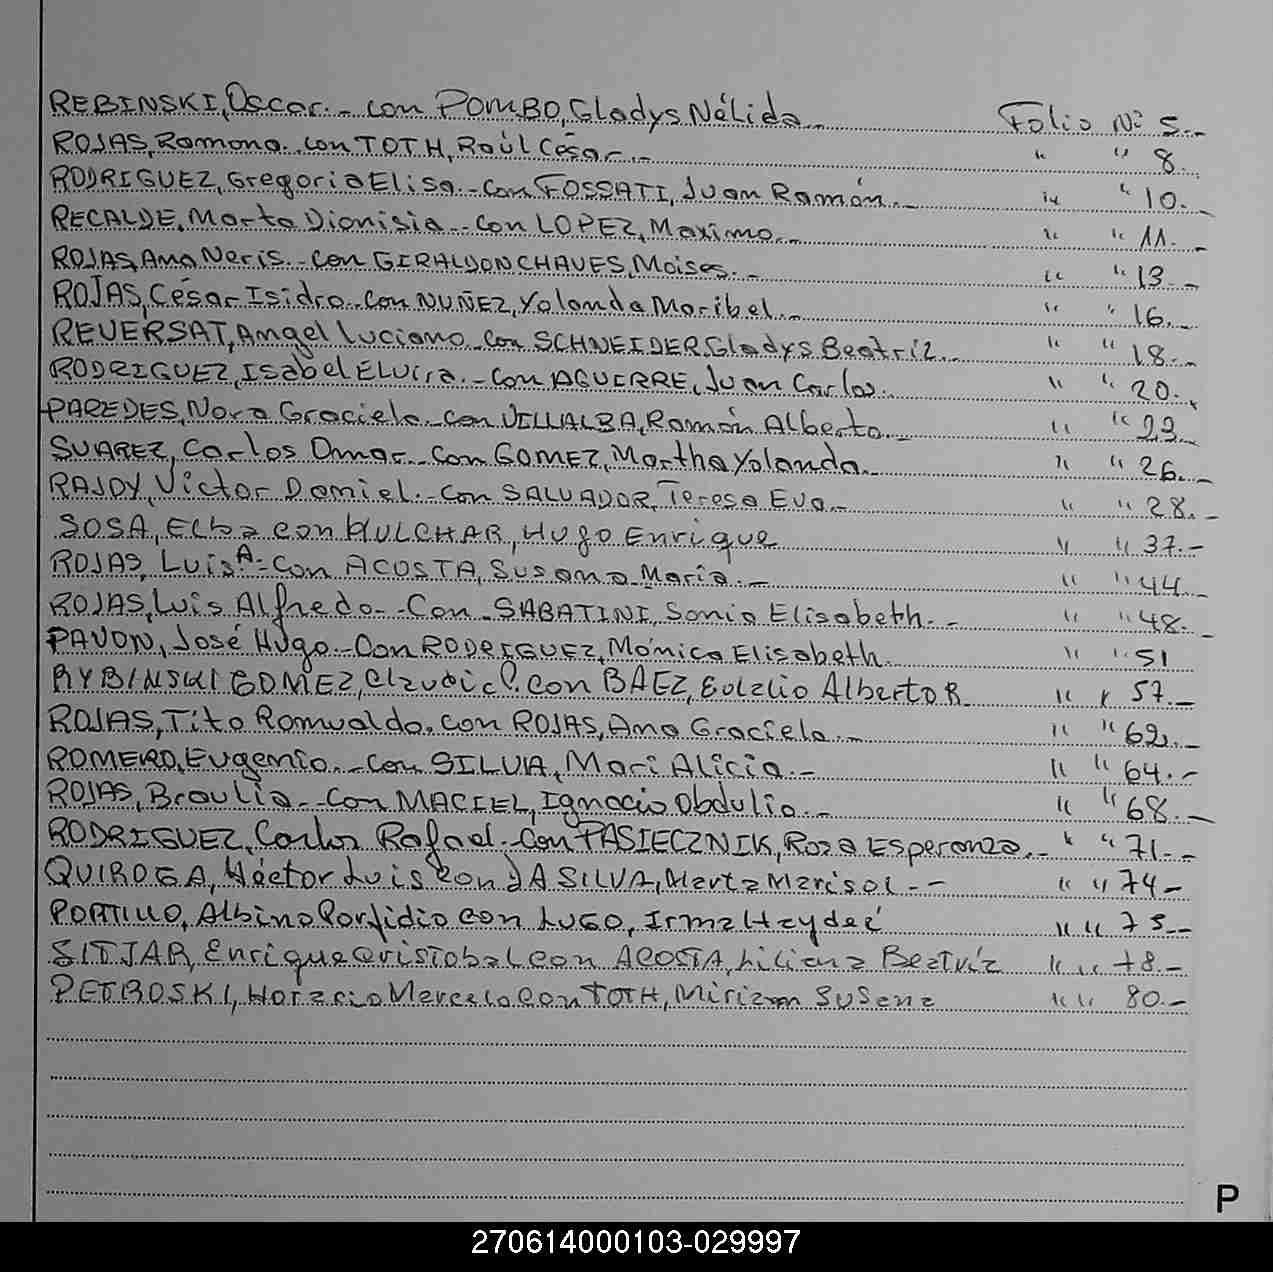 REBINSKI, Oscar.- con POMBO, Gladys Nélida.- Folio Nº 5.-
ROJAS, Ramona.- con TOTH, Raúl César.- " " 8.
RODRIGUEZ, Gregoria Elisa.- con FOSSATI, Juan Ramón.- " " 10.-
RECALDE, Marta Dionisia.- con LOPEZ, Maximo.- " " 11.-
ROJAS, Ana Neris.- con GIRALDON CHAVES, Moises.- " " 13.-
ROJAS, César Isidro.- con NUÑEZ, Yolanda Maribel.- " " 16.-
REVERSAT, Angel Luciano.- con SCHNEIDER, Gladys Beatriz.- " " 18.-
RODRIGUEZ, Isabel Elvira.- con AGUIRRE, Juan Carlos. " " 20.-
PAREDES, Nora Graciela.- con VILLALBA, Ramón Alberto.- " " 23.-
SUAREZ, Carlos Omar.- con GOMEZ, Martha Yolanda.- " " 26.-
RAJOY, Victor Daniel.- con SALVADOR, Teresa Eva.- " " 28.-
SOSA, Elba con HULCHAR, Hugo Enrique " " 37.-
ROJAS, Luis A.- con ACOSTA, Susana Maria.- " " 44.-
ROJAS, Luis Alfredo.- con SABATINI, Sonia Elisabeth.- " " 48.-
PAVON, José Hugo.- con RODRIGUEZ, Mónica Elisabeth. " " 51
RYBINSKI GOMEZ, Claudic P. con BAEZ, Eulalio Alberto R. " " 57.-
ROJAS, Tito Romualdo. con ROJAS, Ana Graciela.- " " 62.-
ROMERO, Eugenio.- con SILVA, Mari Alicia.- " " 64.-
ROJAS, Braulia.- con MACIEL, Ignacio Obdulio.- " " 68.-
RODRIGUEZ, Carlos Rafael.- con PASIECZNIK, Rosa Esperanza.- " " 71.-
QUIROGA, Héctor Luis con DA SILVA, Marta Marisol.- " " 74-
PORTILLO, Albino Porfidio con LUGO, Irma Haydeé " " 75.-
SITJAR, Enrique Cristobal con ACOSTA, Liliana Beatríz " " 78.-
PETROSKI, Horacio Marcelo con TOTH, Miriam Susana " " 80.-
P
270614000103-029997